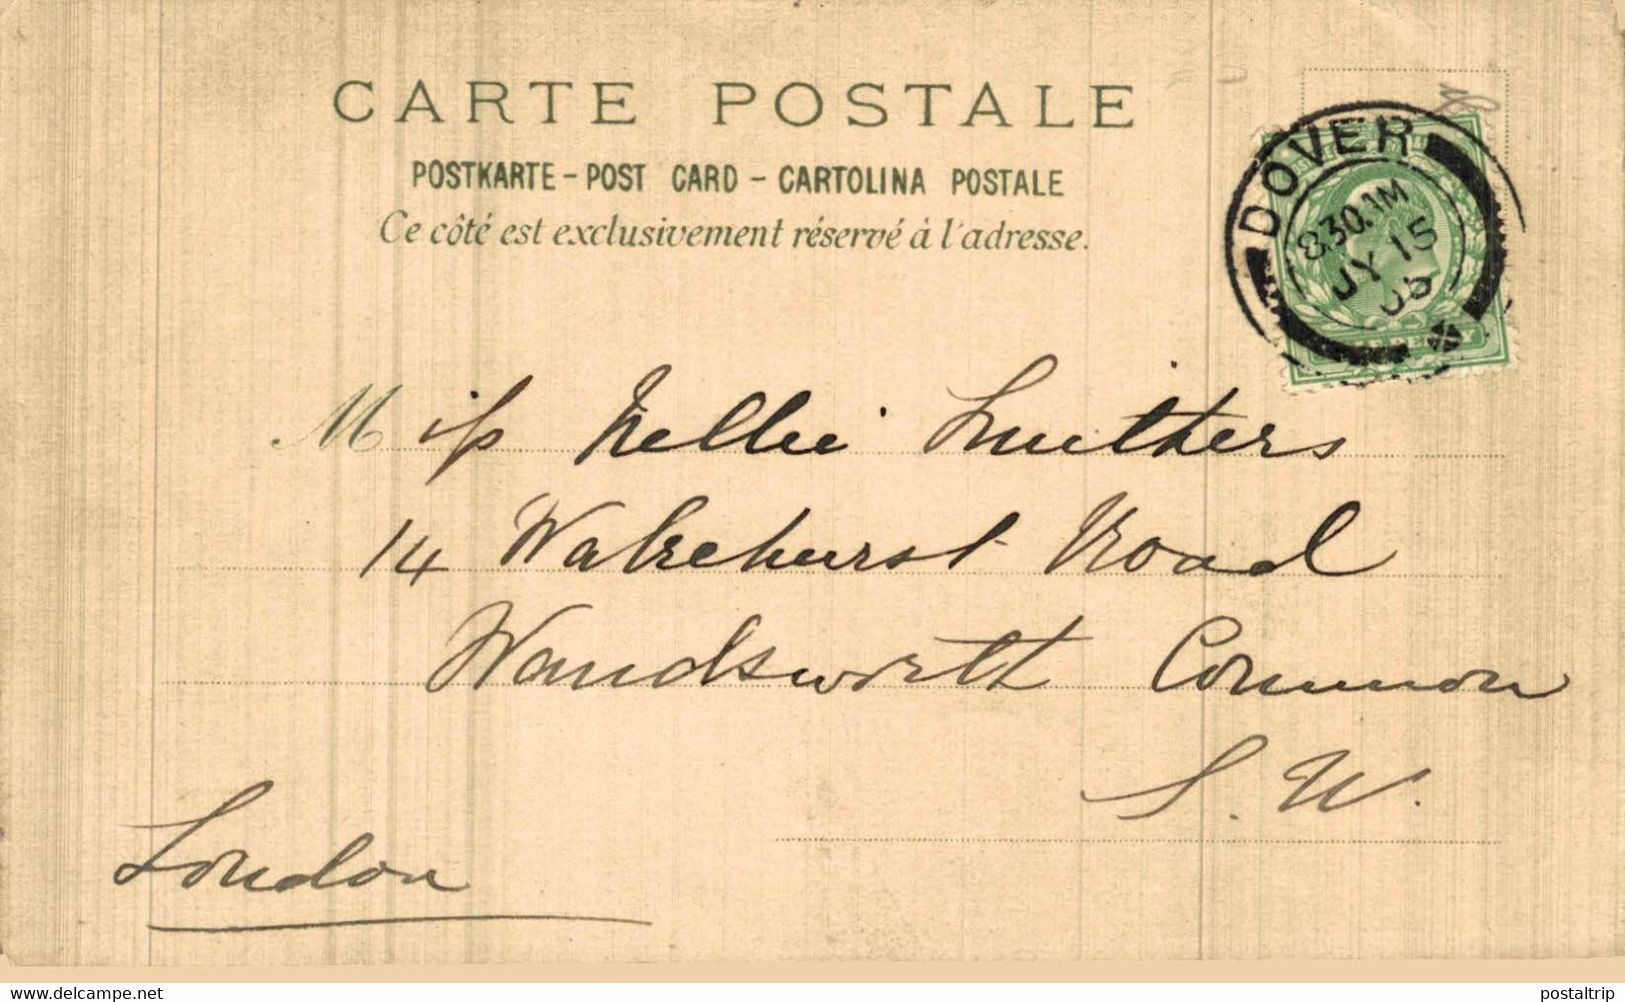 CARTE POSTALE
POSTKARTE - POST CARD - CARTOLINA POSTALE
Ce côté est exclusivement réservé à l'adresse.
DOVER
8.30 AM
JY 15
Miss Nellie Smithers
14 Wakehurst Road
Wandsworth Common
S. W.
London
Delcampe.net
postaltrip